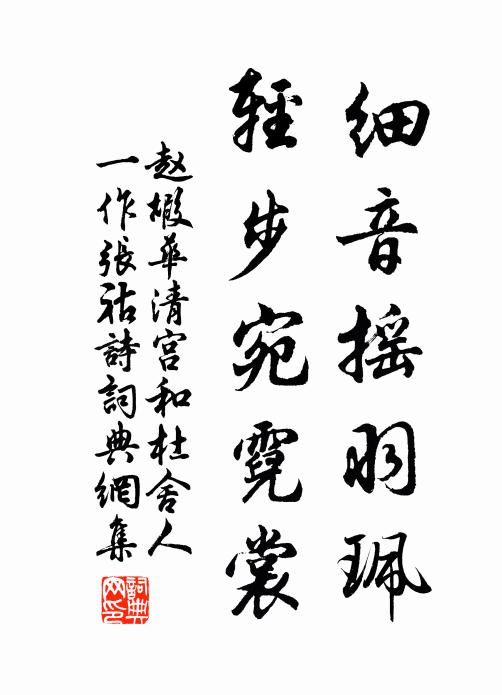 细音摇羽珮
轻步宛霓裳
赵嘏华清宫和杜舍人
一作張祜詩詞典網集
詞典网印